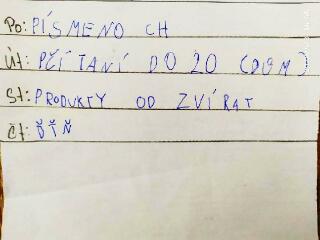 Po: PÍSMENO CH
Út: PČÍTANÍ DO 20 (DŮM)
St: PRODUKTY OD ZVÍRAT
Čt: ĎŤŇ